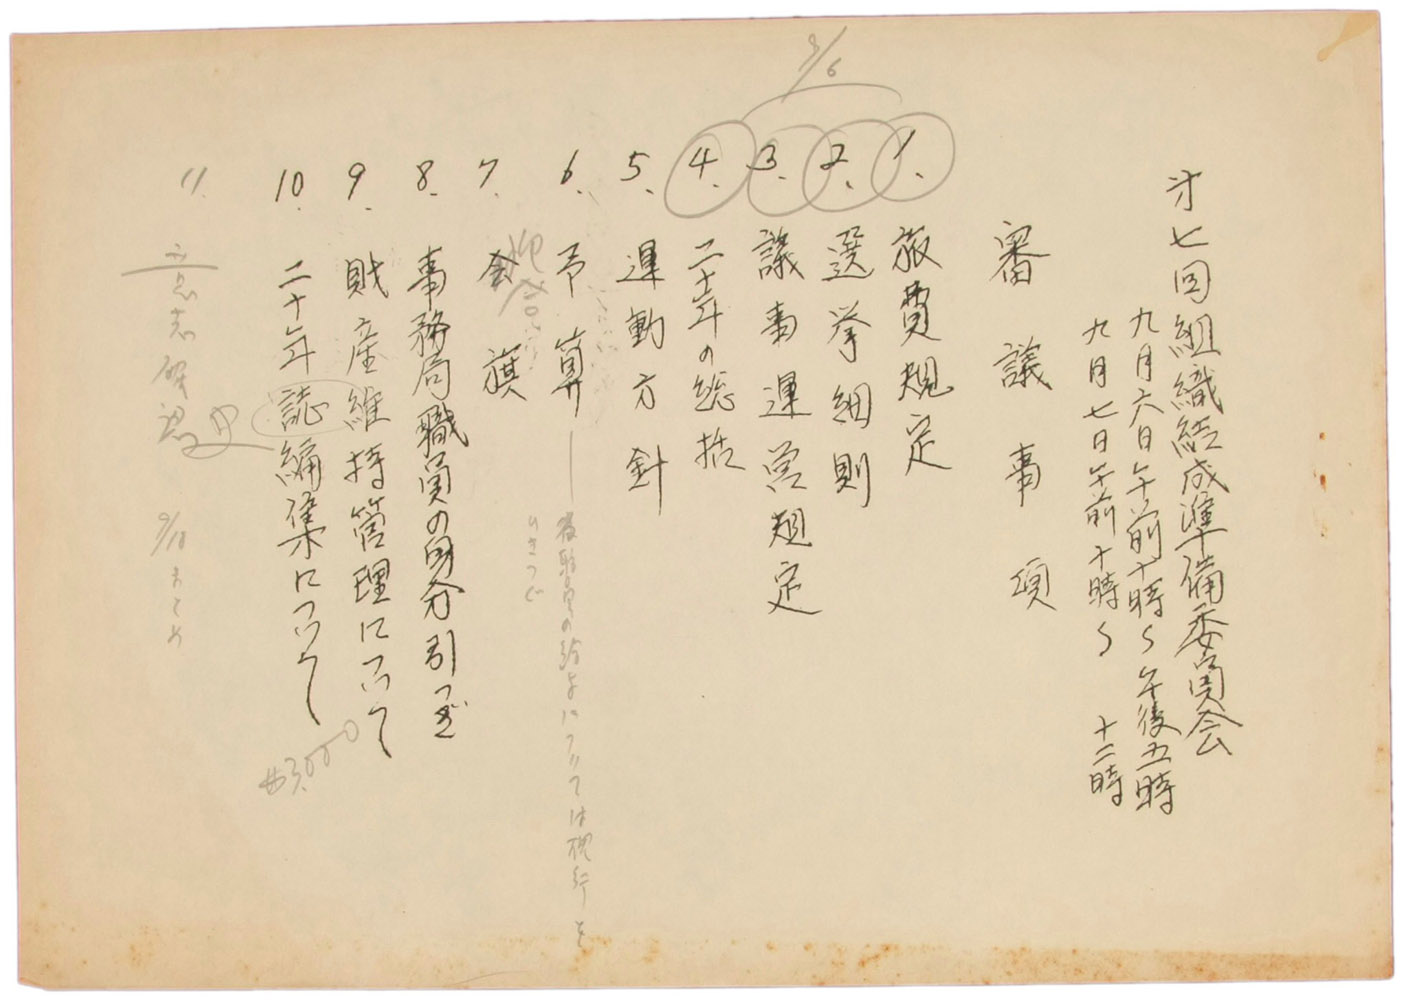 才七回組織結成準備委員会
九月六日午前十時〜午後五時
九月七日午前十時〜十二時
審議事項
9/6
1. 旅費規定
2. 選挙細則
3. 議事運営規定
4. 二十年の総括
5. 運動方針
6. 予算 ― 役職員の給与については現行を
ひきつぐ
7. 会旗
8. 事務局職員の身分引つぎ
9. 財産維持管理について
10. 二十年誌編集について
¥3,000
11. 意志確認 9/18 まとめ